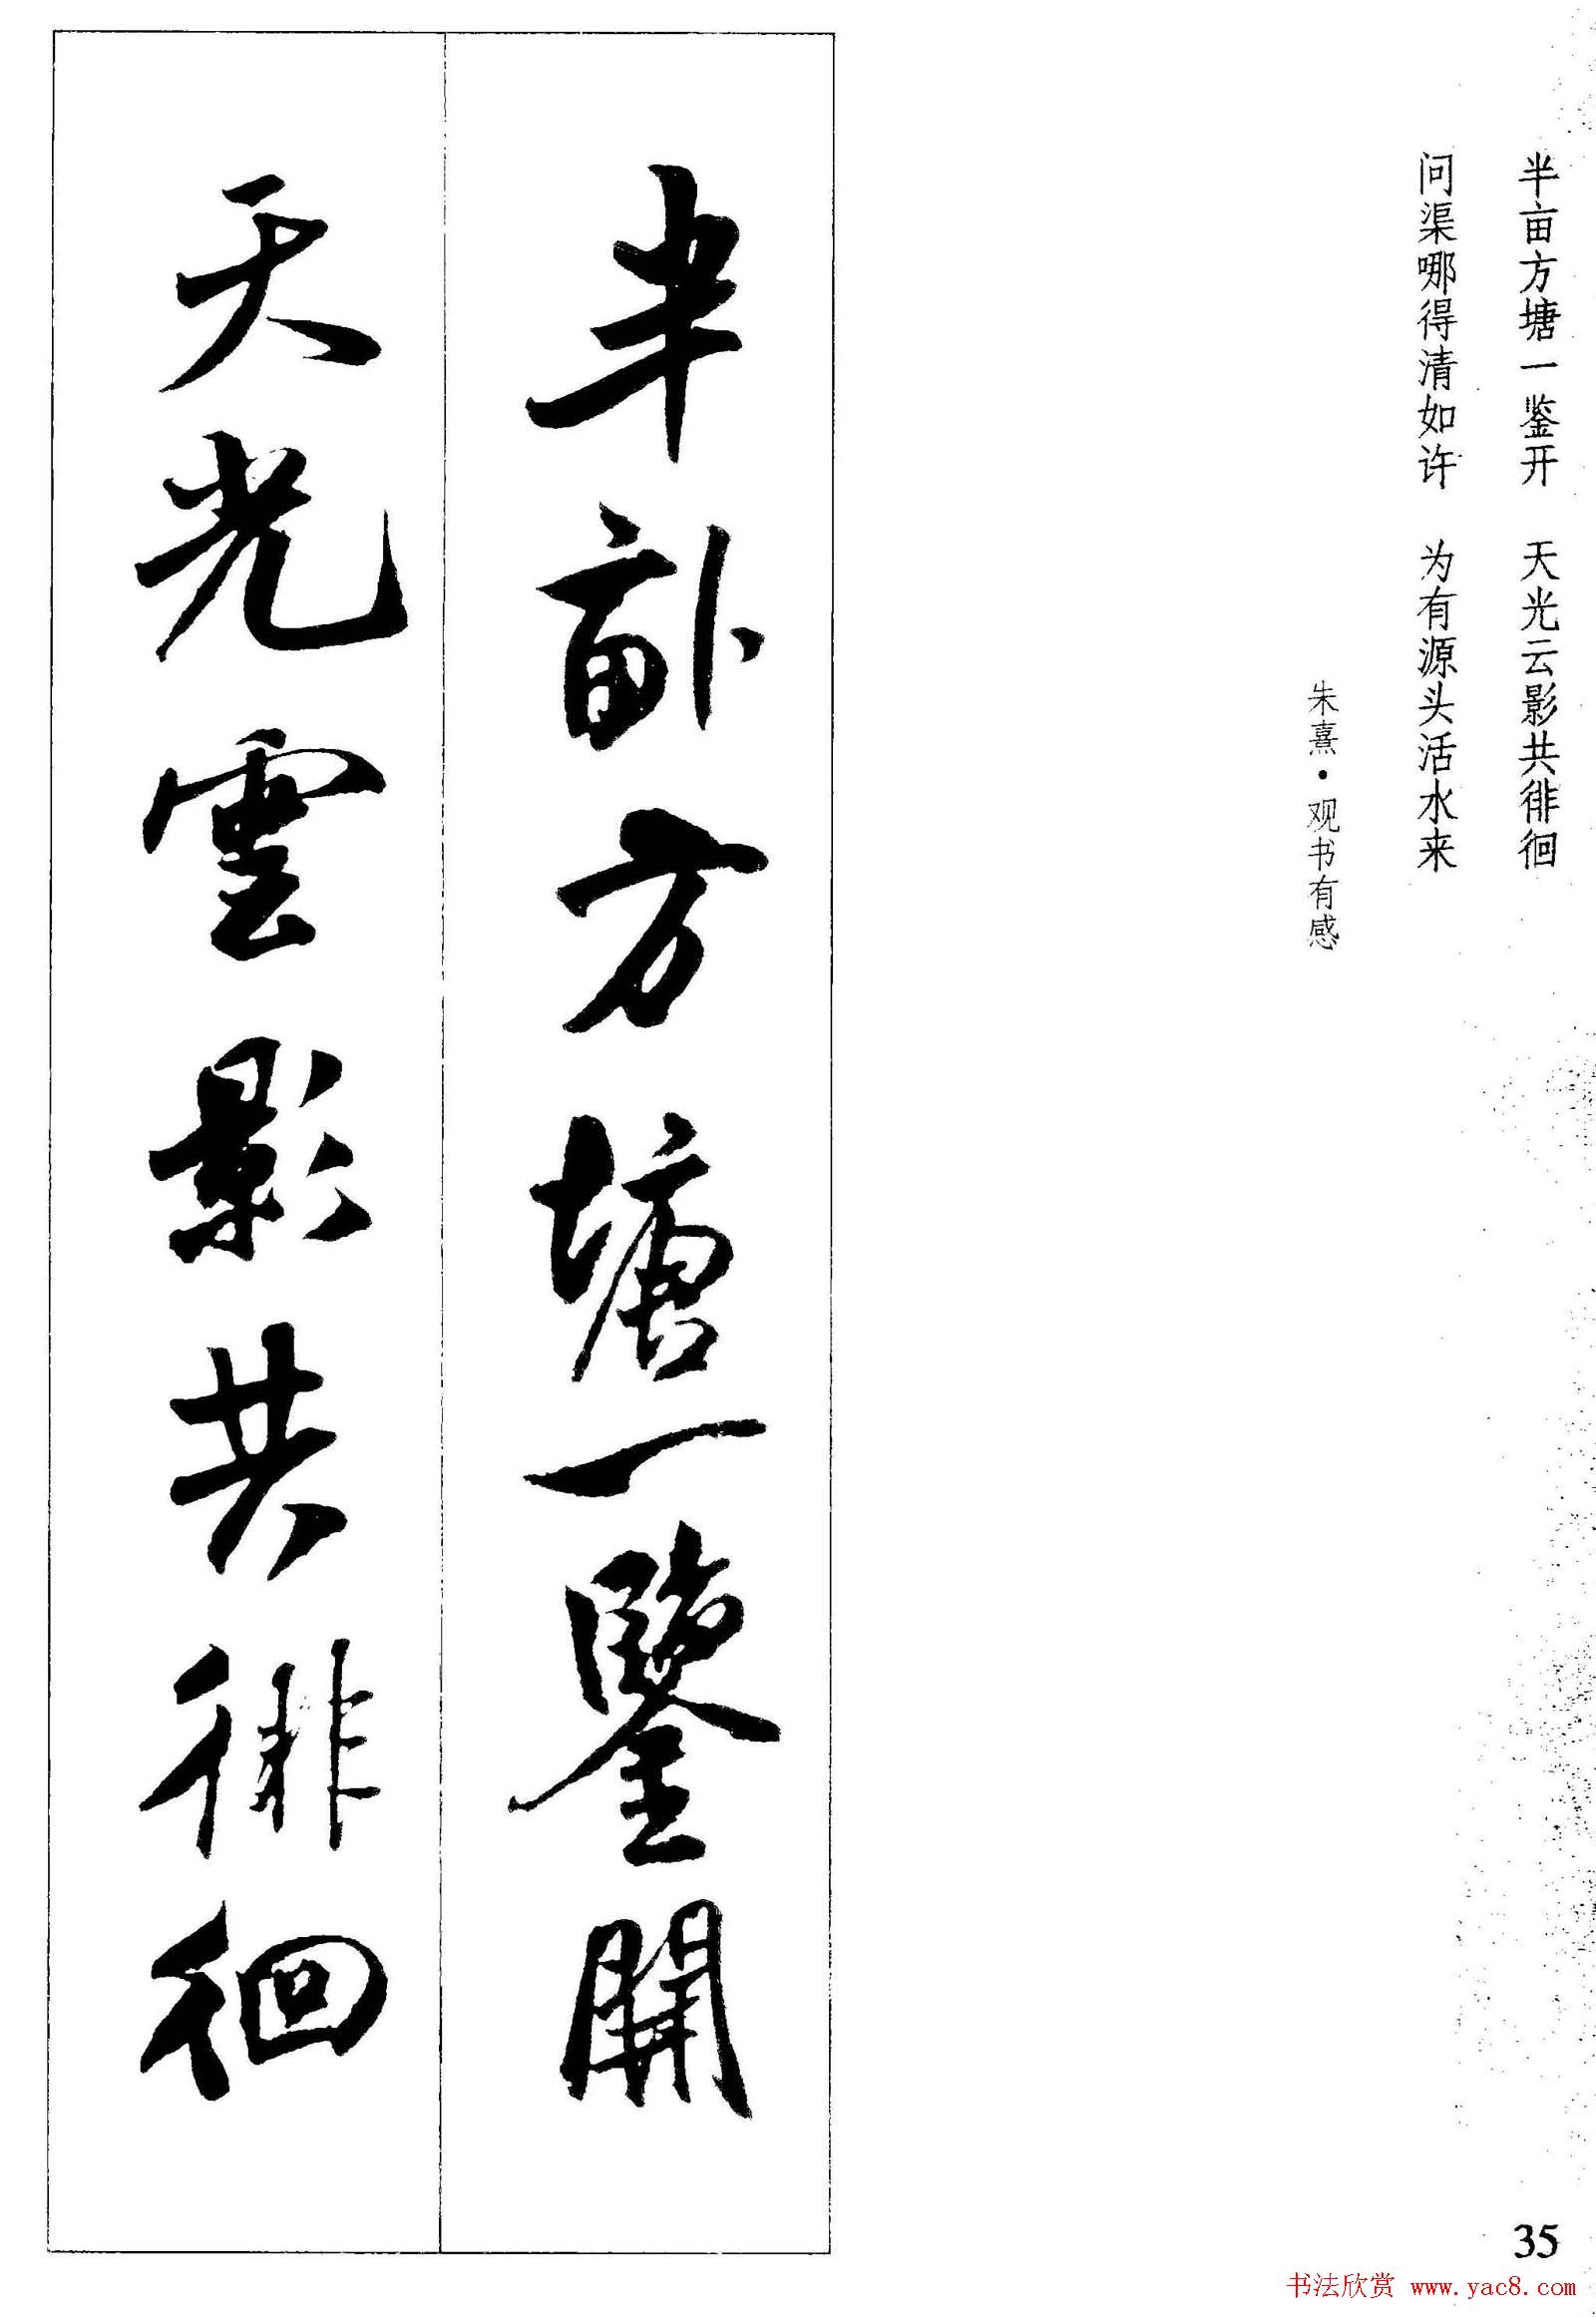 半亩方塘一鉴开　天光云影共徘徊
问渠哪得清如许　为有源头活水来
朱熹·观书有感
半畝方塘一鑒開
天光雲影共徘徊
35
书法欣赏 www.yac8.com